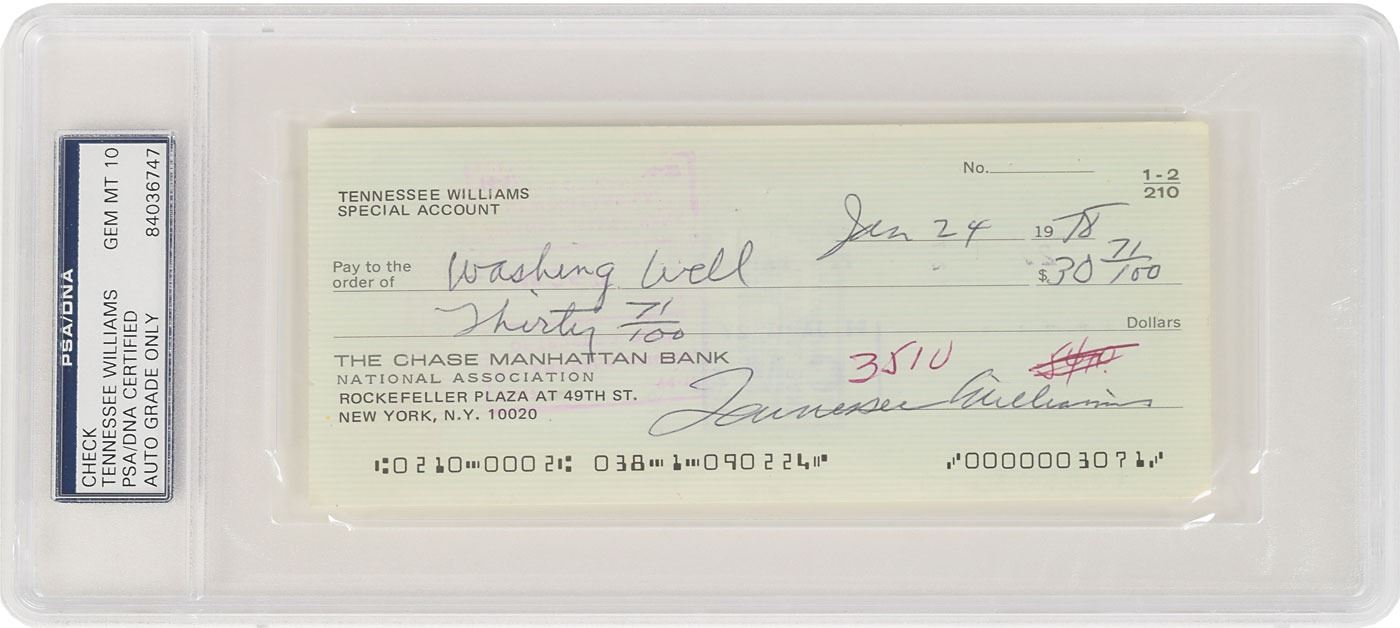 PSA/DNA
CHECK GEM MT 10
TENNESSEE WILLIAMS
PSA/DNA CERTIFIED
AUTO GRADE ONLY 84036747
No.
1-2
210
TENNESSEE WILLIAMS
SPECIAL ACCOUNT
Jan 24 19 78
Pay to the
order of Washing Well $30 71/100
Thirty 71/100 Dollars
THE CHASE MANHATTAN BANK
NATIONAL ASSOCIATION
ROCKEFELLER PLAZA AT 49TH ST.
NEW YORK, N.Y. 10020
3510
Tennessee Williams
⑆0210⑉0002⑆ 038⑉1⑉090224⑈ ⑇0000003071⑇